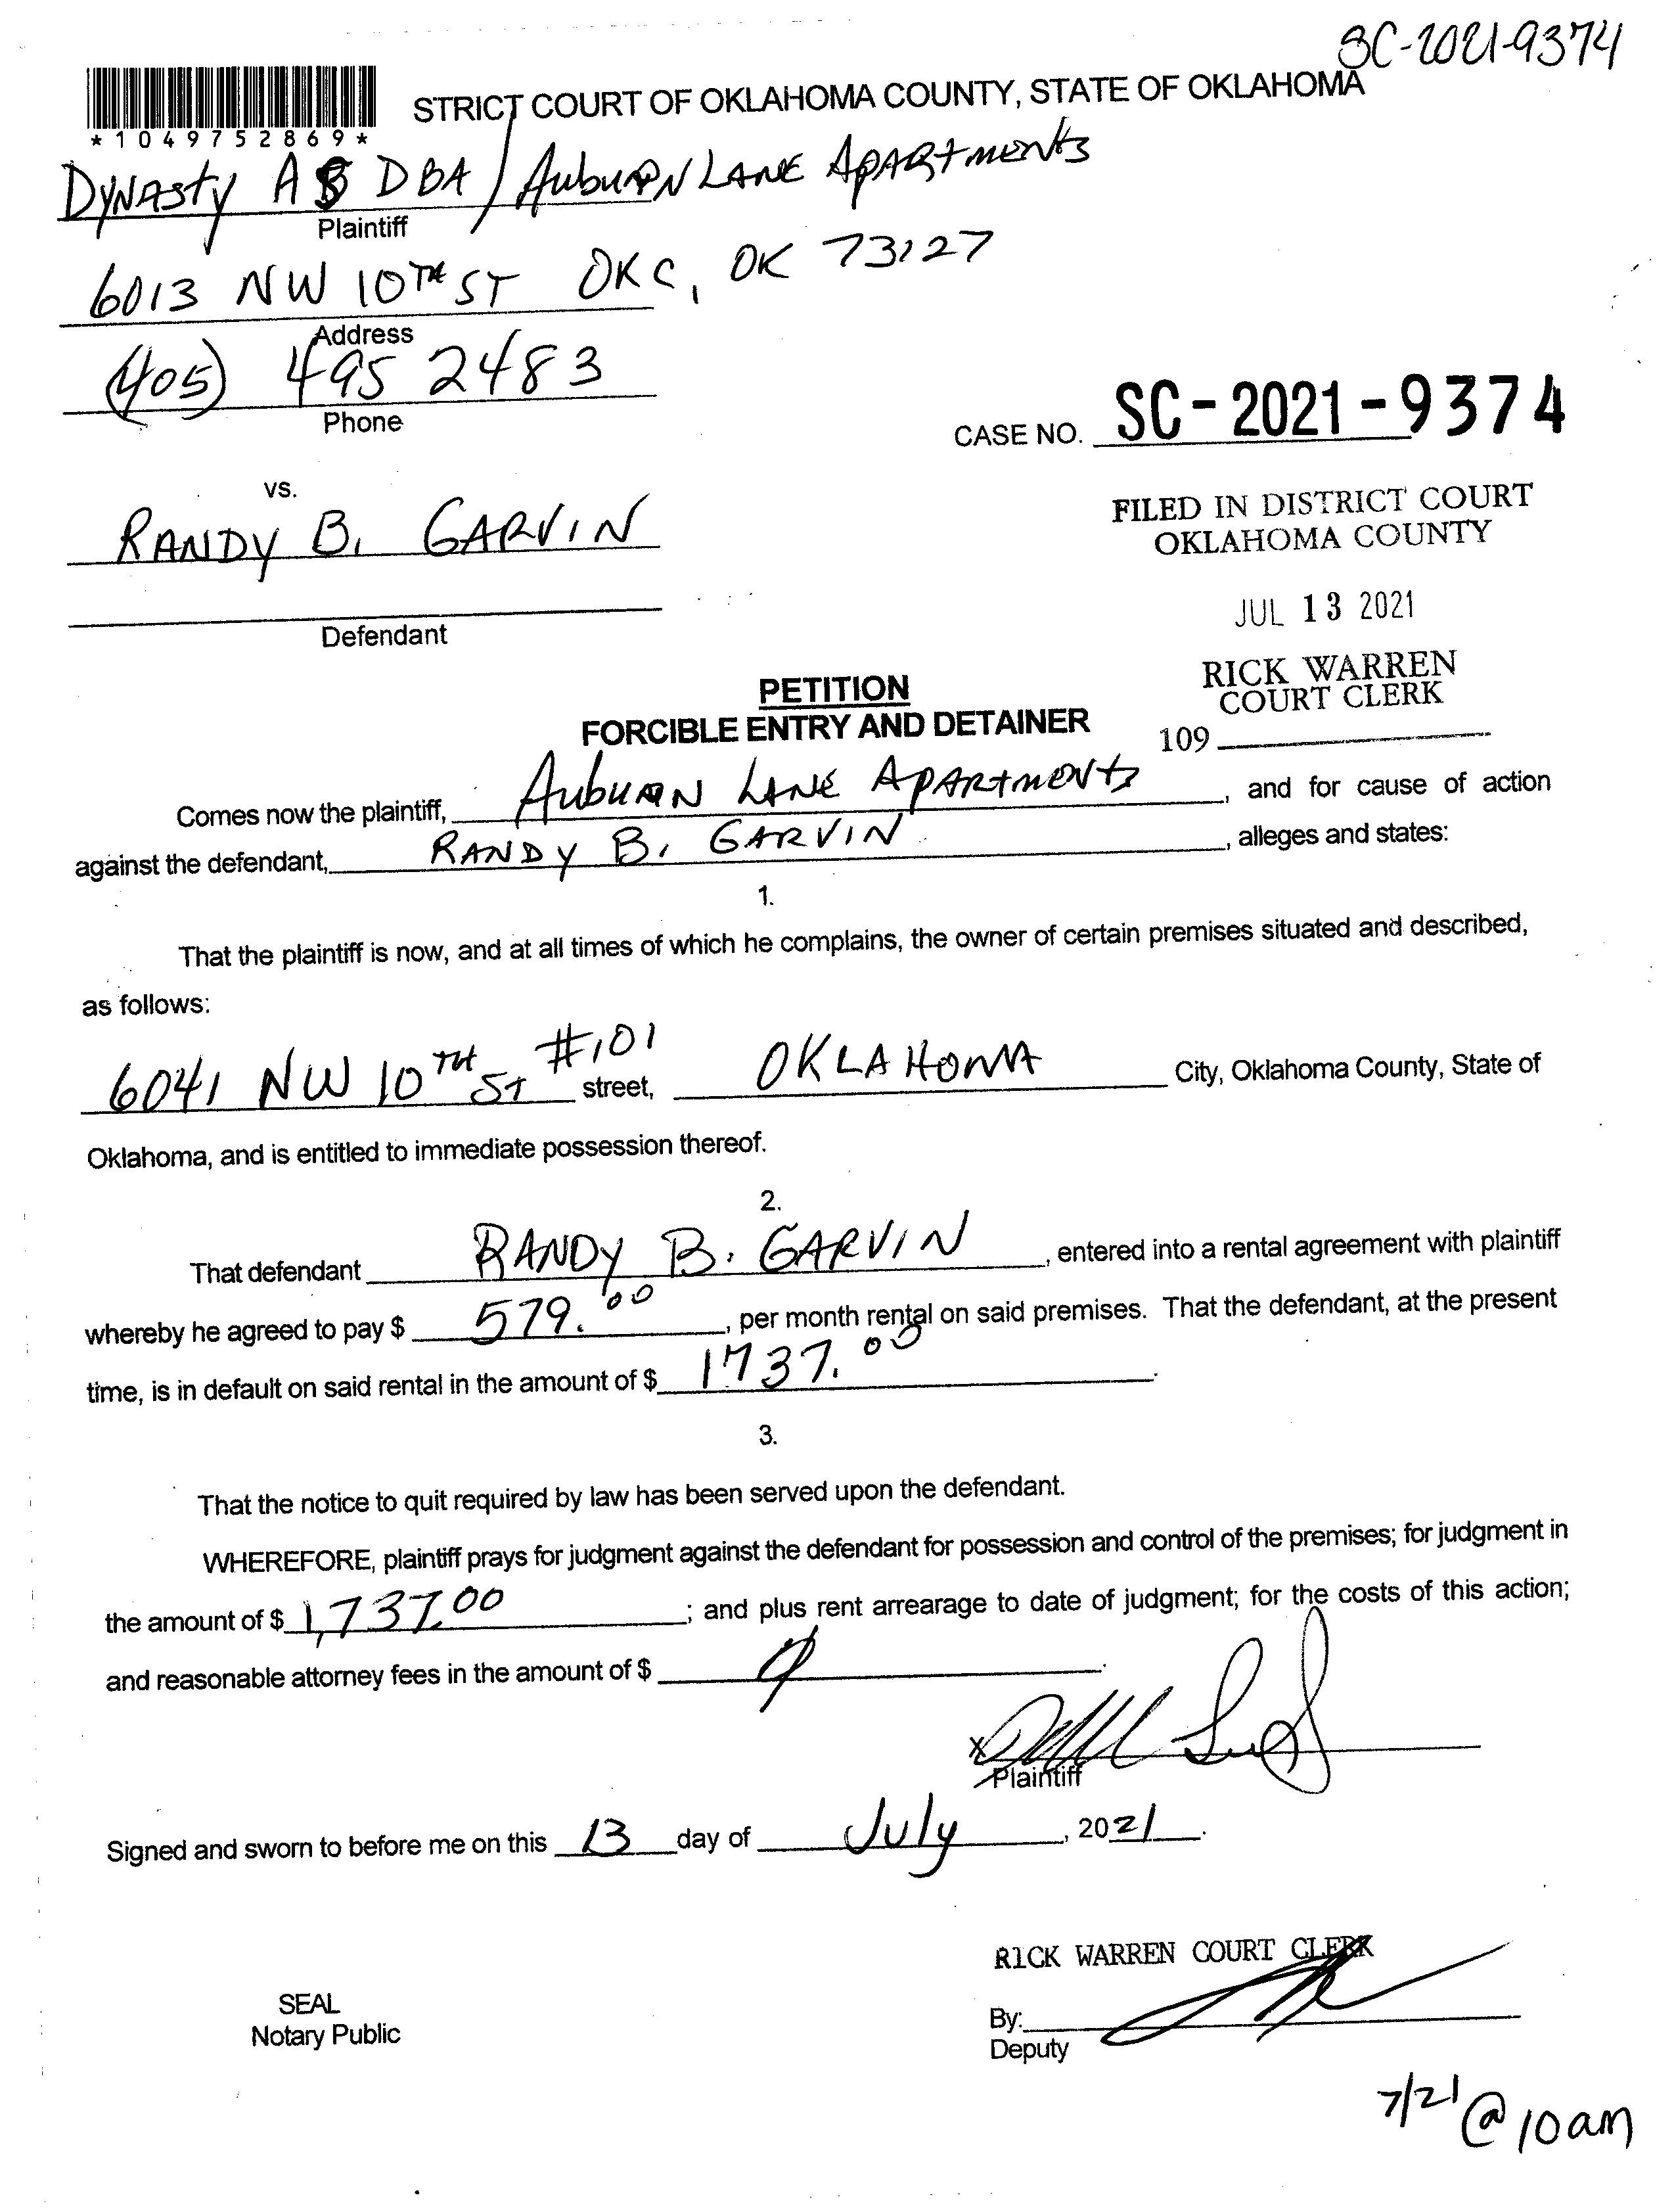 SC-2021-9374
STRICT COURT OF OKLAHOMA COUNTY, STATE OF OKLAHOMA
*1049752869*
DYNASTY A8 DBA / AUBURN LANE APARTMENTS
Plaintiff
6013 NW 10TH ST OKC, OK 73127
Address
(405) 495 2483
Phone
CASE NO. SC-2021-9374
vs.
RANDY B. GARVIN
Defendant
FILED IN DISTRICT COURT
OKLAHOMA COUNTY
JUL 13 2021
RICK WARREN
COURT CLERK
109
PETITION
FORCIBLE ENTRY AND DETAINER
Comes now the plaintiff, AUBURN LANE APARTMENTS, and for cause of action
against the defendant, RANDY B. GARVIN, alleges and states:
1.
That the plaintiff is now, and at all times of which he complains, the owner of certain premises situated and described,
as follows:
6041 NW 10TH ST #101 street, OKLAHOMA City, Oklahoma County, State of
Oklahoma, and is entitled to immediate possession thereof.
2.
That defendant RANDY B. GARVIN, entered into a rental agreement with plaintiff
whereby he agreed to pay $ 579.00, per month rental on said premises. That the defendant, at the present
time, is in default on said rental in the amount of $ 1737.00.
3.
That the notice to quit required by law has been served upon the defendant.
WHEREFORE, plaintiff prays for judgment against the defendant for possession and control of the premises; for judgment in
the amount of $ 1,737.00; and plus rent arrearage to date of judgment; for the costs of this action;
and reasonable attorney fees in the amount of $ 0.
x
Plaintiff
Signed and sworn to before me on this 13 day of July, 2021.
RICK WARREN COURT CLERK
SEAL
Notary Public
By:
Deputy
7/21 @ 10am